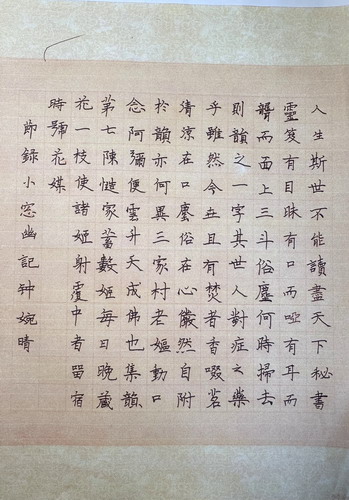 人生斯世不能讀盡天下秘書
靈笈有目眛有口而啞有耳而
聾而面上三斗俗塵何時掃去
則韻之一字其世人對症之藥
乎雖然今卋且有焚者香啜茗
清涼在口塵俗在心儼然自附
於韻亦何異三家村老嫗動口
念阿彌便雲升天成佛也集韻
第七陳慥家蓄數姬每日晚藏
花一枝使諸姬射覆中者留宿
時號花媒
節錄小窓幽記钟婉晴